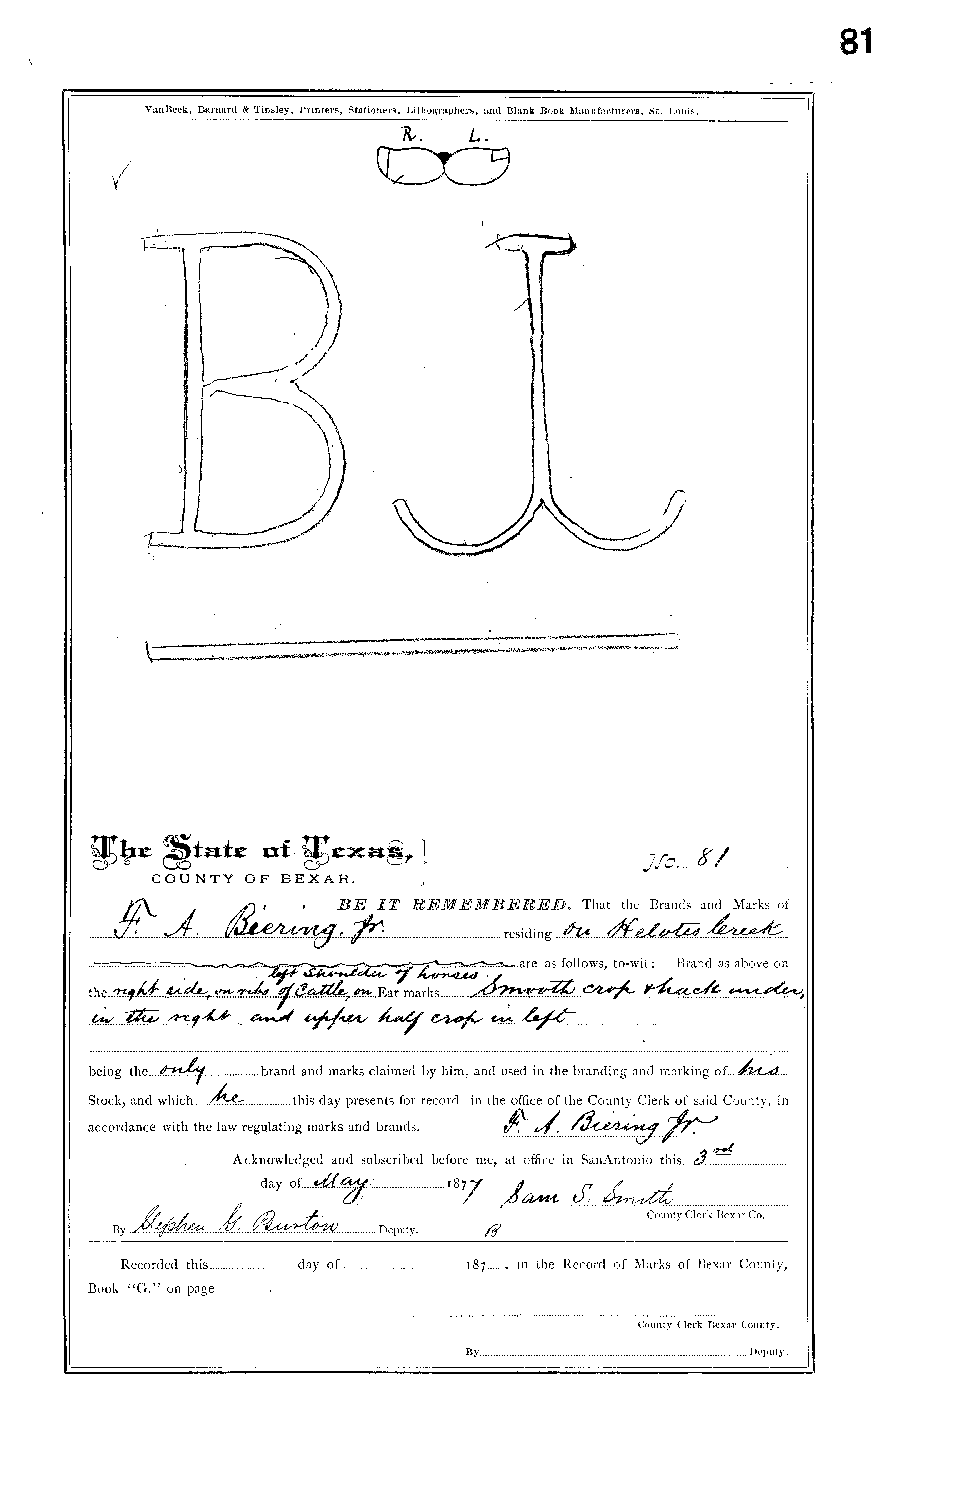 81
VanBeek, Barnard & Tinsley, Printers, Stationers, Lithographers, and Blank Book Manufacturers, St. Louis.
R. L.
B J
The State of Texas,
No. 81
COUNTY OF BEXAR.
BE IT REMEMBERED, That the Brands and Marks of
F. A. Biering, Jr. residing on Helotes Creek
are as follows, to-wit: Brand as above on
left Shoulder of horses
the right side, on ribs of Cattle, on Ear marks Smooth crop & hack under,
in the right and upper half crop in left
being the only brand and marks claimed by him, and used in the branding and marking of his
Stock, and which he this day presents for record in the office of the County Clerk of said County, in
accordance with the law regulating marks and brands. F. A. Biering Jr.
Acknowledged and subscribed before me, at office in SanAntonio this 3rd
day of May 1877 Sam S. Smith
County Clerk Bexar Co.
By Stephen G. Burton Deputy. B
Recorded this day of 187 , in the Record of Marks of Bexar County,
Book "G." on page
County Clerk Bexar County.
By Deputy.